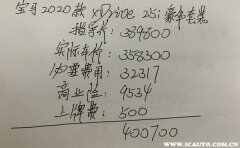 宝马2020款 xDrive 25i 豪华套装
指导价: 389600
实际车价: 358300
加置费用: 32317
商业险: 9534
上牌费: 500
400700
www.5CAUTO.com.cn